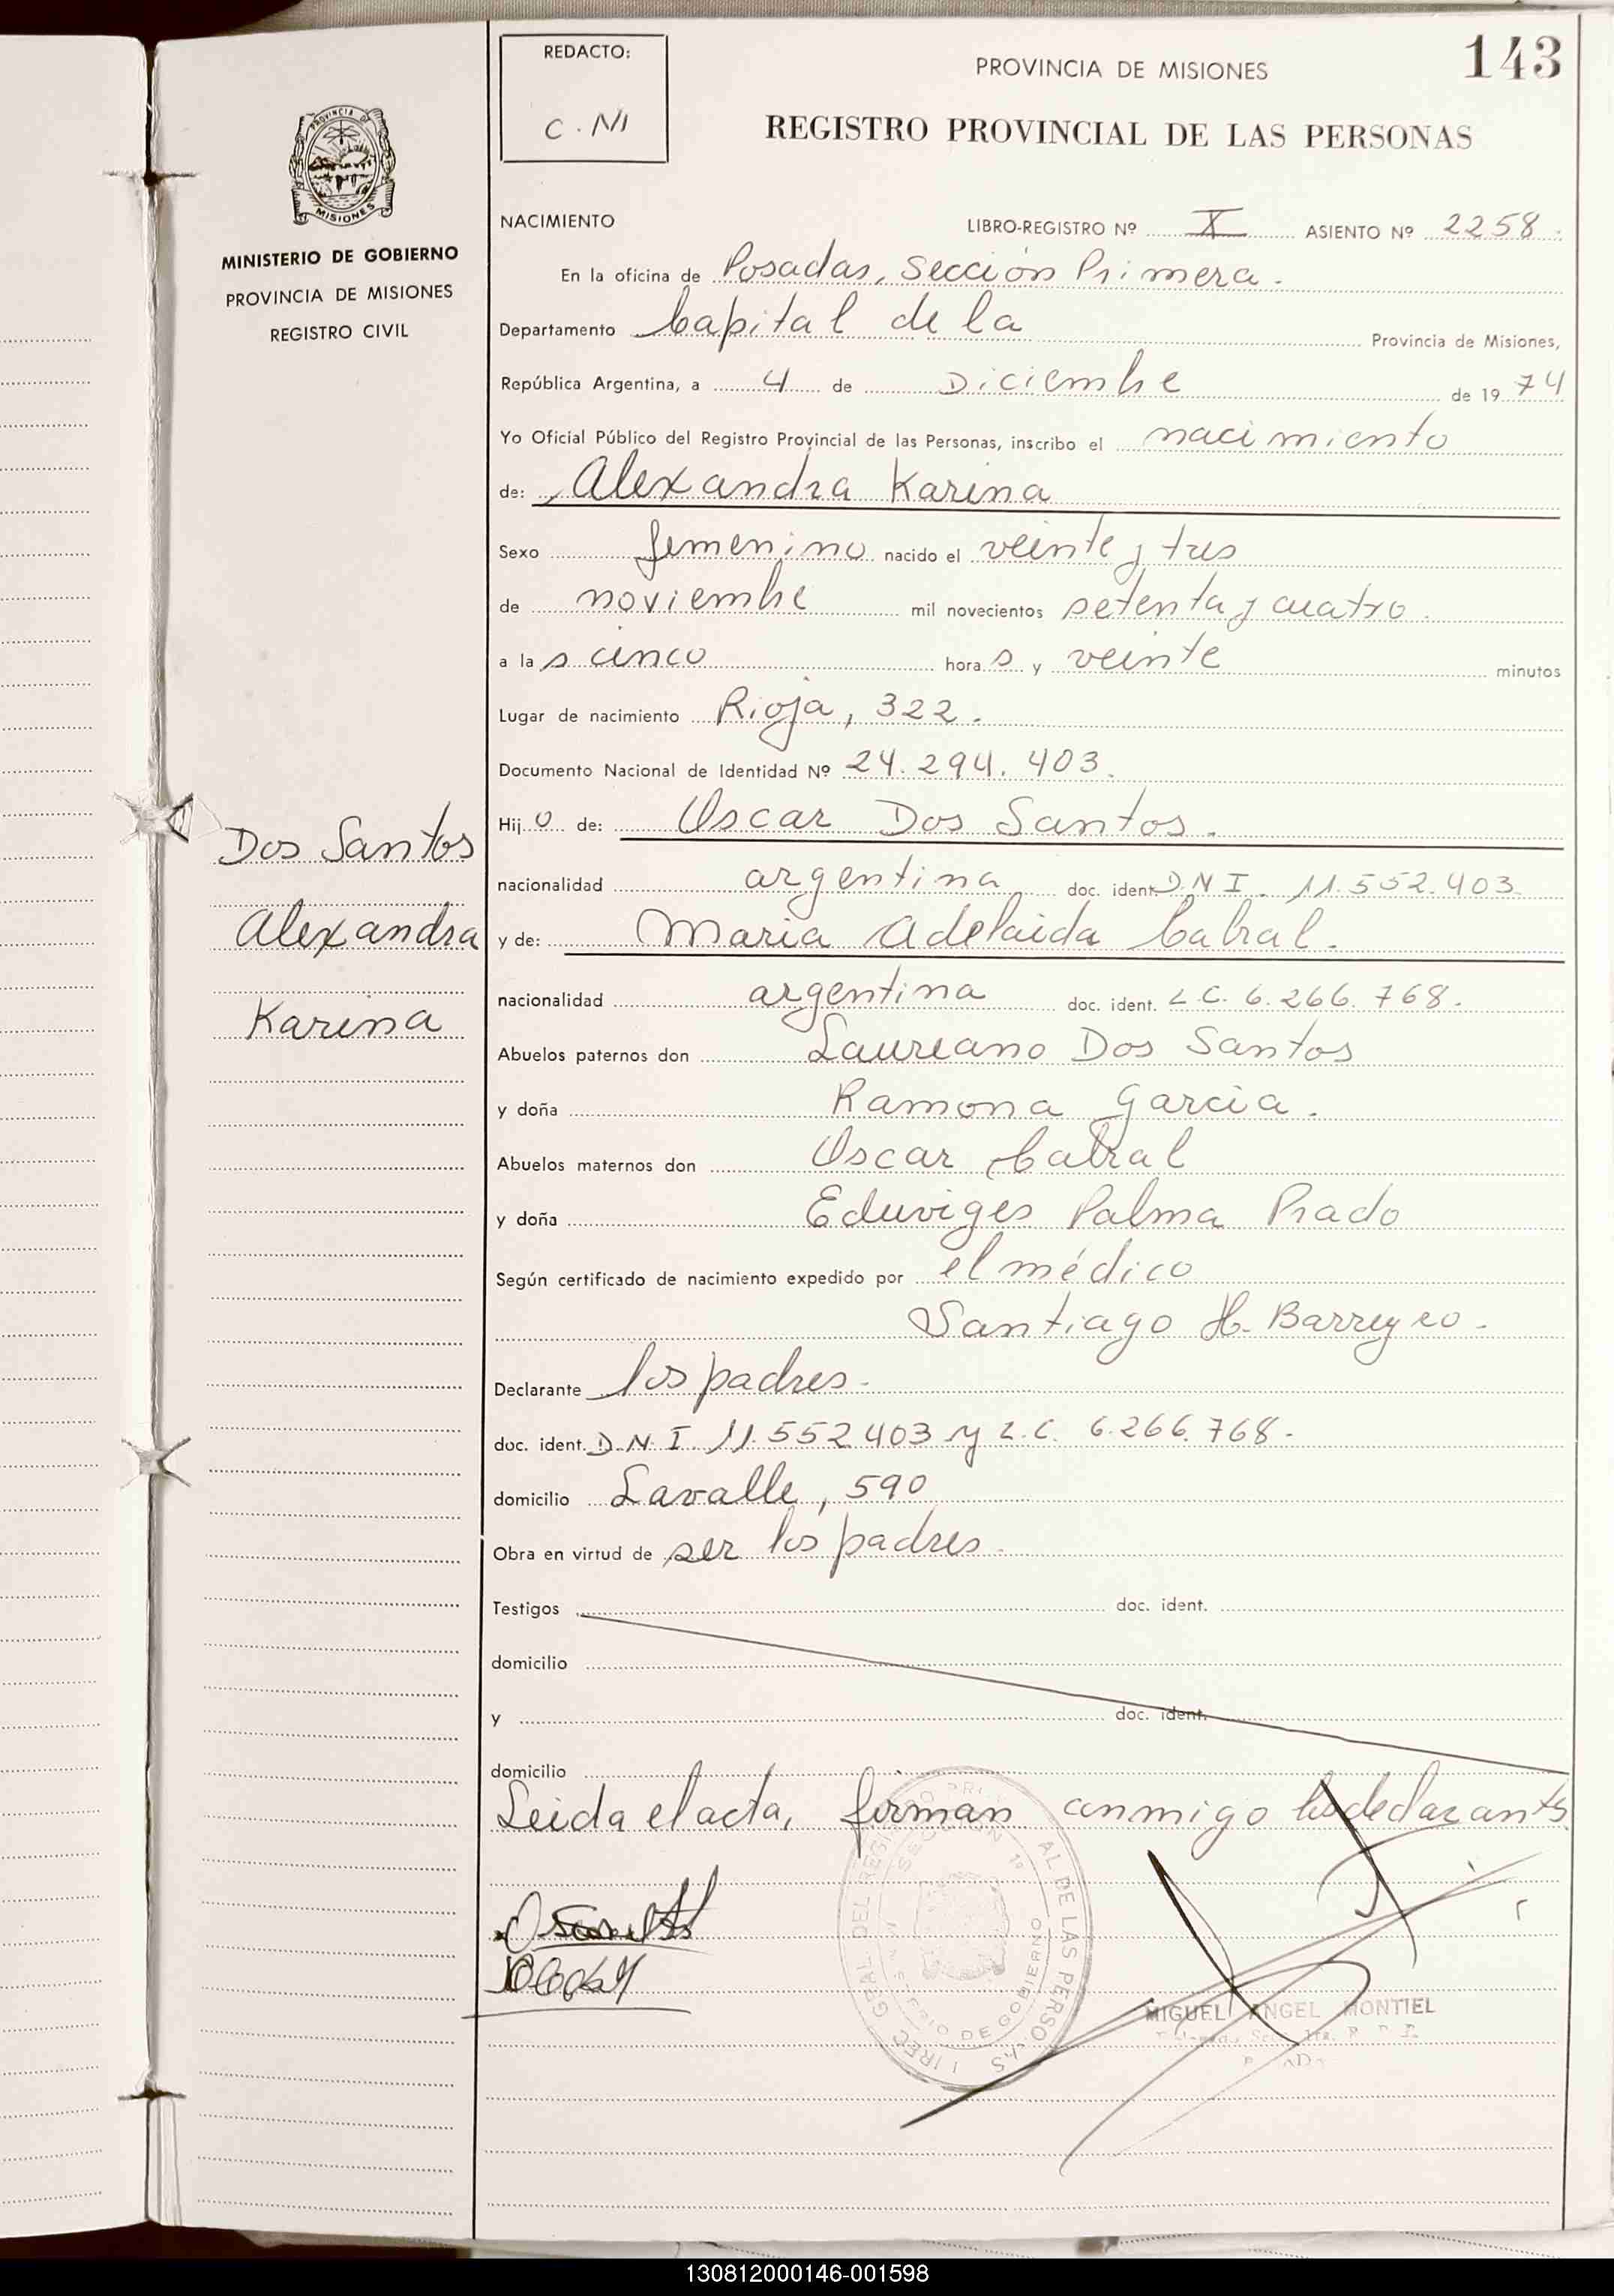 REDACTO:
C. N1
PROVINCIA DE MISIONES
143
REGISTRO PROVINCIAL DE LAS PERSONAS
PROVINCIA DE
MISIONES
MINISTERIO DE GOBIERNO
PROVINCIA DE MISIONES
REGISTRO CIVIL
NACIMIENTO LIBRO-REGISTRO Nº X ASIENTO Nº 2258
En la oficina de Posadas, Sección Primera.
Departamento Capital de la Provincia de Misiones,
República Argentina, a 4 de Diciembre de 1974
Yo Oficial Público del Registro Provincial de las Personas, inscribo el nacimiento
de: Alexandra Karina
Sexo femenino nacido el veinte y tres
de noviembre mil novecientos setenta y cuatro.
a las cinco horas y veinte minutos
Lugar de nacimiento Rioja, 322.
Documento Nacional de Identidad Nº 24.294.403.
Hijo de: Oscar Dos Santos.
Dos Santos
nacionalidad argentina doc. ident. D.N.I. 11.552.403
Alexandra
y de: Maria Adelaida Cabral.
nacionalidad argentina doc. ident. L.C. 6.266.768.
Karina
Abuelos paternos don Laureano Dos Santos
y doña Ramona Garcia.
Abuelos maternos don Oscar Cabral
y doña Eduviges Palma Prado
Según certificado de nacimiento expedido por el médico
Santiago H. Barreyro.
Declarante los padres.
doc. ident. D.N.I. 11.552403 y L.C. 6.266.768.
domicilio Lavalle, 590
Obra en virtud de ser los padres.
Testigos doc. ident.
domicilio
y doc. ident.
domicilio
Leida el acta, firman conmigo los declarants.
SECCION 1ª
AL DE LAS PERSONAS
GRAL DEL REGI
DE GOBIERNO
MIGUEL ANGEL MONTIEL
130812000146-001598